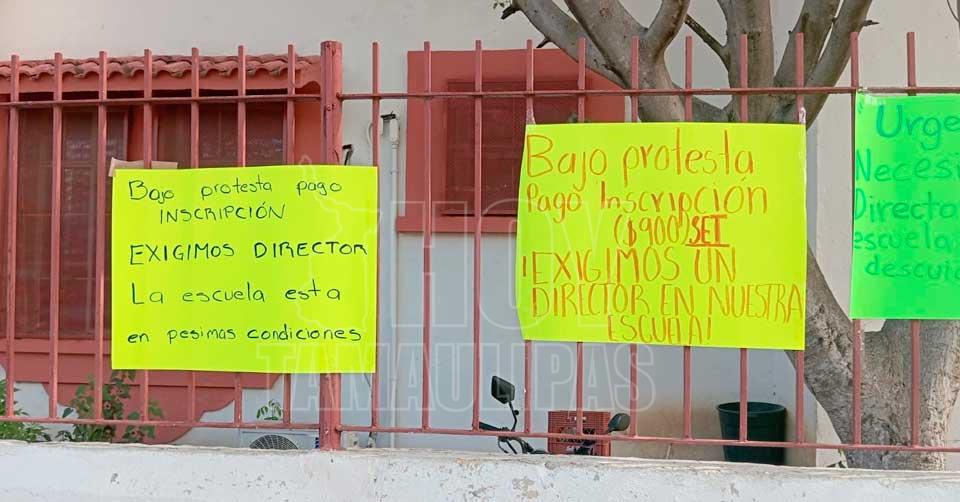 Bajo protesta pago
INSCRIPCIÓN
EXIGIMOS DIRECTOR
La escuela esta
en pesimas condiciones
Bajo protesta
Pago Inscripcion
($900) SET
¡EXIGIMOS UN
DIRECTOR EN NUESTRA
ESCUELA!
Urge
Necesi
Directo
escuela
descuid
HOY
TAMAULIPAS